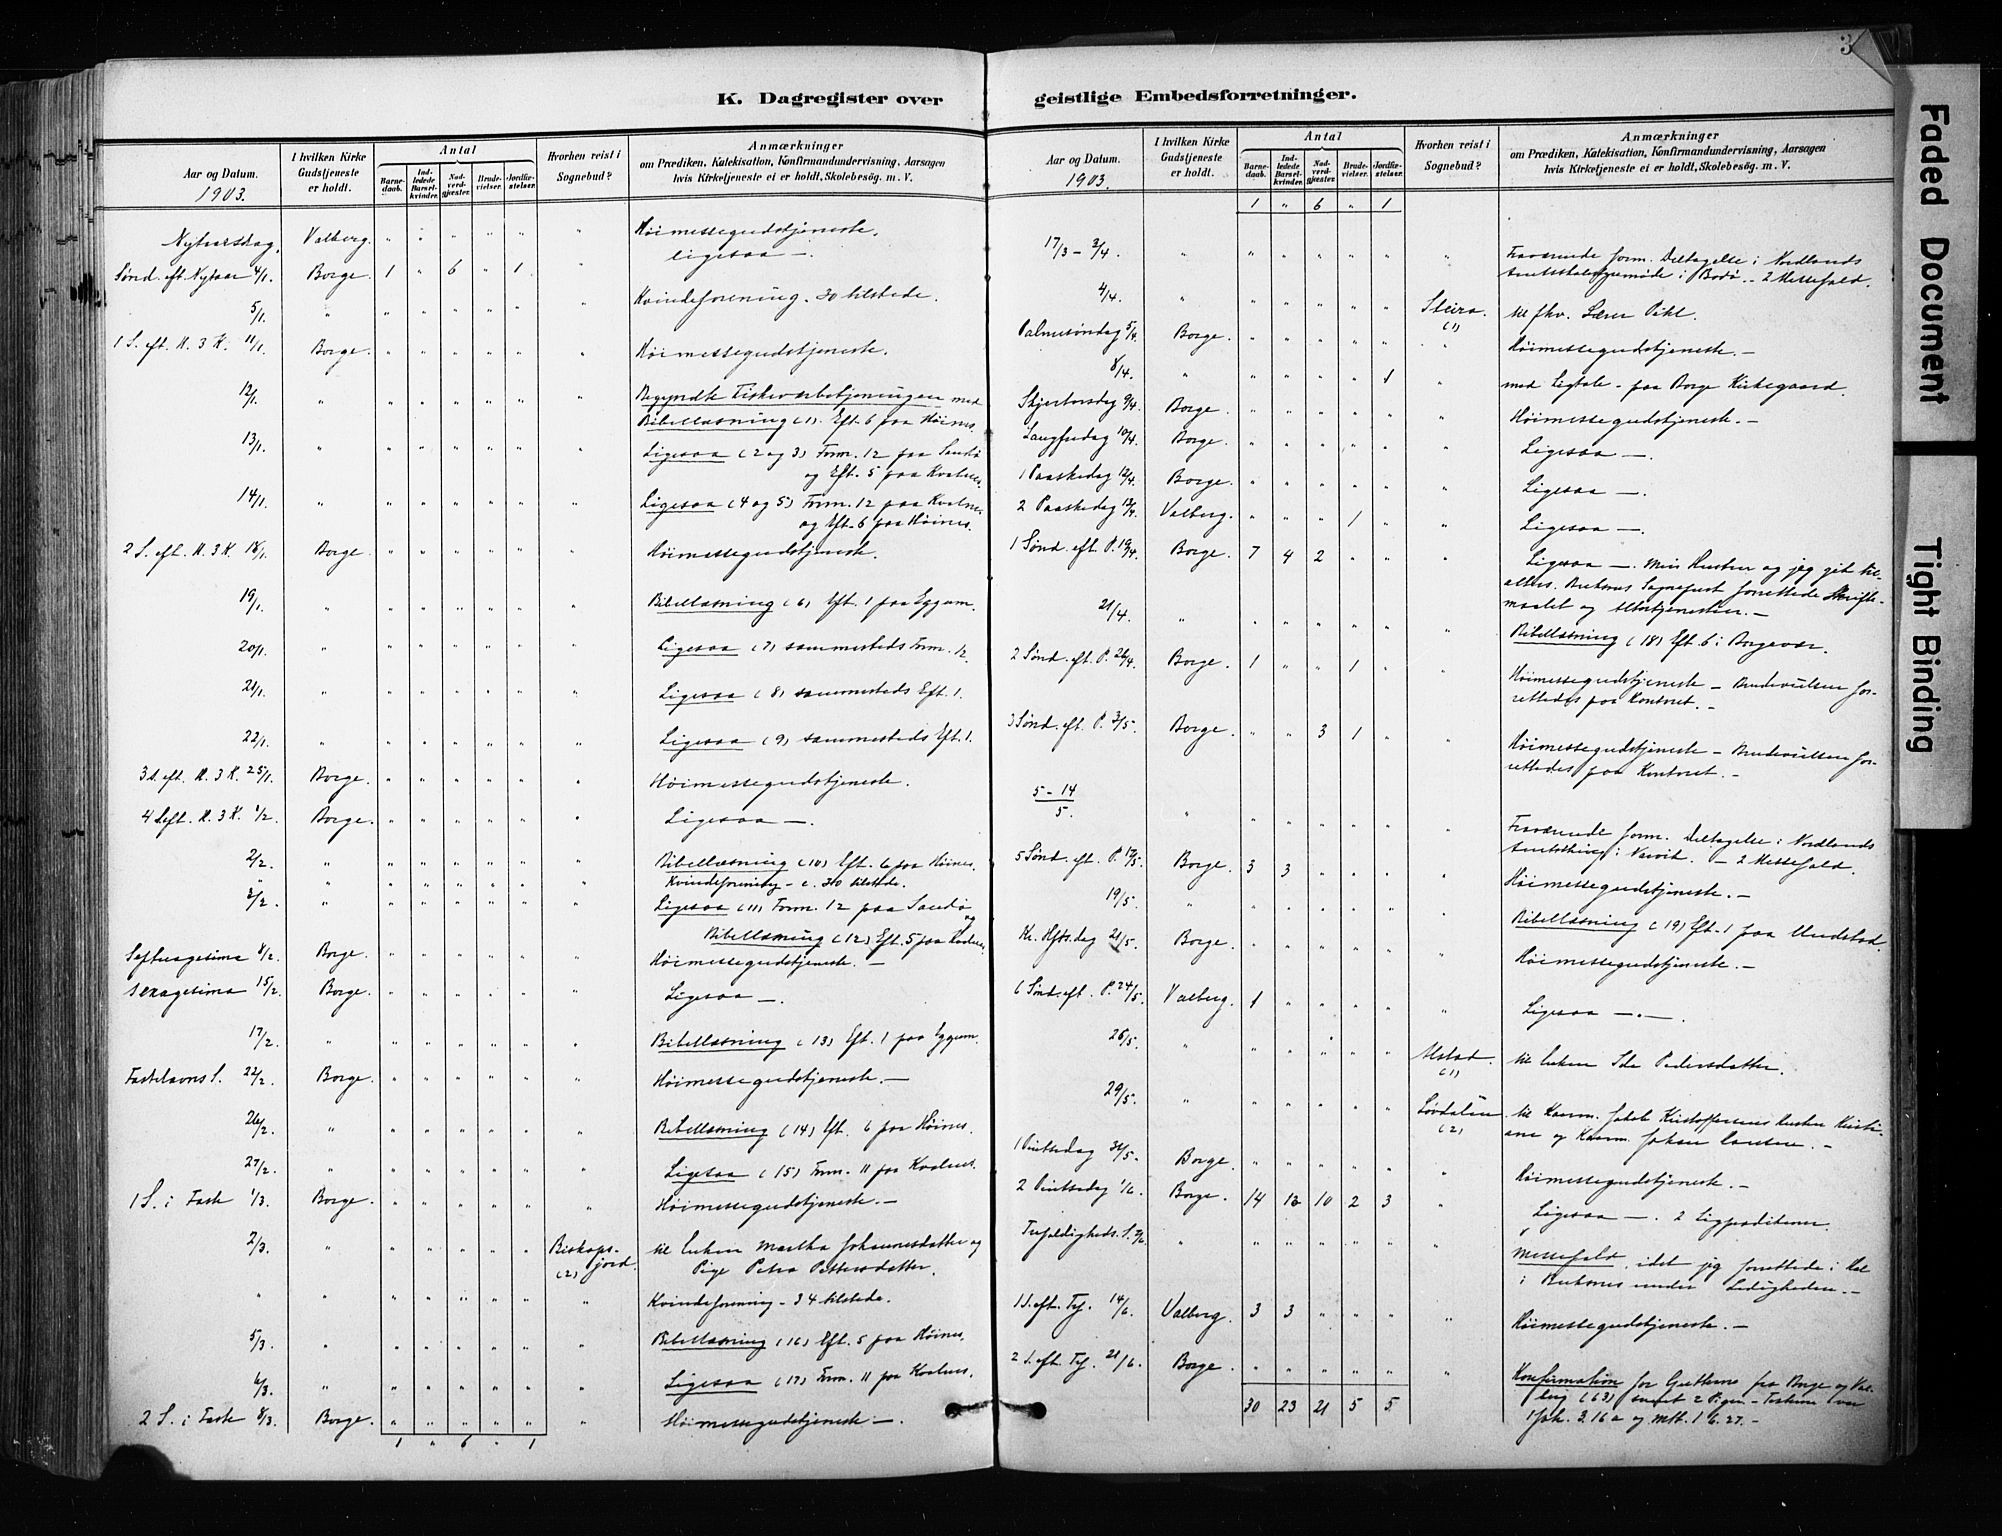 K. Dagregister over
Aar og Datum. 1903.
I hvilken Kirke Gudstjeneste er holdt.
Antal
Barne-daab.
Ind-ledede Barsel-kvinder.
Nad-verd-gjester.
Brude-vielser.
Jordfæ-stelser.
Hvorhen reist i Sognebud?
Anmærkninger
om Prædiken, Katekisation, Konfirmandundervisning, Aarsagen
hvis Kirketjeneste ei er holdt, Skolebesøg. m. V.
Nytaarsdag. Valberg. " " " " " " Høimessegudstjeneste.
Sønd. eft. Nytaar 4/1. Borge. 1 " 6 " 1 " Ligesaa —.
5/1. " " " " " " " Kvindeforening. 30 tilstede.
1 S. eft. H. 3 K. 11/1. Borge. " " " " " " Høimessegudstjeneste.
12/1. " " " " " " " Begyndte Fiskeværbetjeningen med
Bibellæsning (1). Eft. 6 paa Høines.
13/1. " " " " " " " Ligesaa (2 og 3) Form. 12 paa Sandø
og Eft. 5 paa Kvalnes.
14/1. " " " " " " " Ligesaa (4 og 5) Form. 12 paa Kvalnes
og Eft. 6 paa Høines.
2 S. eft. H. 3 K. 18/1. Borge. " " " " " " Høimessegudstjeneste.
19/1. " " " " " " " Bibellæsning (6) Eft. 1 paa Eggum.
20/1. " " " " " " " Ligesaa (7) sammesteds Form. 12.
21/1. " " " " " " " Ligesaa (8) sammesteds Eft. 1.
22/1. " " " " " " " Ligesaa (9) sammesteds Eft. 1.
3 S. eft. H. 3 K. 25/1. Borge. " " " " " " Høimessegudstjeneste.
4 S. eft. H. 3 K. 1/2. Borge. " " " " " " Ligesaa —.
2/2. " " " " " " " Bibellæsning (10) Eft. 6 paa Høines.
" " " " " " " " Kvindeforening - c. 30 tilstede.
3/2. " " " " " " " Ligesaa (11) Form. 12 paa Sandø og
Bibellæsning (12) Eft. 5 paa Kvalnes.
Septuagesima 8/2. Borge. " " " " " " Høimessegudstjeneste. —
Sexagesima 15/2. Borge. " " " " " " Ligesaa —.
17/2. " " " " " " " Bibellæsning (13) Eft. 1 paa Eggum.
Fastelavns S. 22/2. Borge. " " " " " " Høimessegudstjeneste. —
26/2. " " " " " " " Bibellæsning (14) Eft. 6 paa Høines.
27/2. " " " " " " " Ligesaa (15) Form. 11 paa Kvalnes.
1 S. i Faste 1/3. Borge. " " " " " " Høimessegudstjeneste. —
2/3. " " " " " " Biskopsjord. (2) til Enken Martha Johannesdatter og
Pige Petra Pettersdatter.
" " " " " " " " Kvindeforening - 34 tilstede.
5/3. " " " " " " " Bibellæsning (16) Eft. 5 paa Høines.
6/3. " " " " " " " Ligesaa (17) Form. 11 paa Kvalnes.
2 S. i Faste 8/3. Borge. " " " " " " Høimessegudstjeneste —.
1 " 6 " 1
3
geistlige Embedsforretninger.
Aar og Datum. 1903.
I hvilken Kirke Gudstjeneste er holdt.
Antal
Barne-daab.
Ind-ledede Barsel-kvinder.
Nad-verd-gjester.
Brude-vielser.
Jordfæ-stelser.
Hvorhen reist i Sognebud?
Anmærkninger
om Prædiken, Katekisation, Konfirmandundervisning, Aarsagen
hvis Kirketjeneste ei er holdt, Skolebesøg. m. V.
1 " 6 " 1
17/3 - 3/4. " " " " " " " Fraværende form. Deltagelse i Nordlands
i Bodø. - 2 Messefald.
4/4. " " " " " " Steira. (1) til fhv. Lærer Pihl.
Palmesøndag 5/4. Borge. " " " " " " Høimessegudstjeneste. —
8/4. " " " " " 1 " med Ligtale - paa Borge Kirkegaard.
Skjærtorsdag 9/4. Borge. " " " " " " Høimessegudstjeneste. —
Langfredag 10/4. Borge. " " " " " " Ligesaa —.
1 Paaskedag 12/4. Borge. " " " " " " Ligesaa —.
2 Paaskedag 13/4. Valberg. " " " 1 " " Ligesaa —.
1 Sønd. eft. P. 19/4. Borge. 7 4 2 " " " Ligesaa —. Min Hustru og jeg gik til
alters. Buksnes Sognepræst forrettede Skrifte-
maalet og Altertjenesten. —
21/4. " " " " " " " Bibellæsning (18) Eft. 6 i Borgevær.
2 Sønd. eft. P. 26/4. Borge. 1 " " 1 " " Høimessegudstjeneste — Brudevielsen for-
rettedes paa Kontoret. —
3 Sønd. eft. P. 3/5. Borge. " " 3 1 " " Høimessegudstjeneste — Brudevielsen for-
rettedes paa Kontoret. —
5 - 14/5. " " " " " " " Fraværende form. Deltagelse i Nordlands
Amtsthing i Narvik. — 2 Messefald.
5 Sønd. eft. P. 17/5. Borge. 3 3 " " " " Høimessegudstjeneste. —
19/5. " " " " " " " Bibellæsning (19) Eft. 1 paa Unstad.
Kr. Hfts. dag 21/5. Borge. " " " " " " Høimessegudstjeneste. —
6 Sønd. eft. P. 24/5. Valberg. 1 " " " " " Ligesaa —.—.
26/5. " " " " " " (1) til Enken Ida Pedersdatter.
29/5. " " " " " " Løvdalen (2) til Kaarm. Jakob Kristoffersens Enken Kristi-
ane og Kaarm. Johan Larsen. —
1 Pintsedag 31/5. Borge. " " " " " " Høimessegudstjeneste. —
2 Pintsedag 1/6. Borge. 14 12 10 2 3 " Ligesaa —. 2
Trefoldigheds. S. 7/6. " " " " " " " Messefald, idet jeg forrettede i Hol
i Buksnes under Ledigheden. —
1 S. eft. Tref. 14/6. Valberg. 3 3 " " " " Høimessegudstjeneste. —
2 S. eft. Tref. 21/6. Borge. " " " " " " Konfirmation for Gutterne fra Borge og Val-
berg (63) samt 2 Piger. —
1 Joh. 3. 16 a og Mtt. 16. 27. —
30 23 21 5 5
Faded Document
Tight Binding